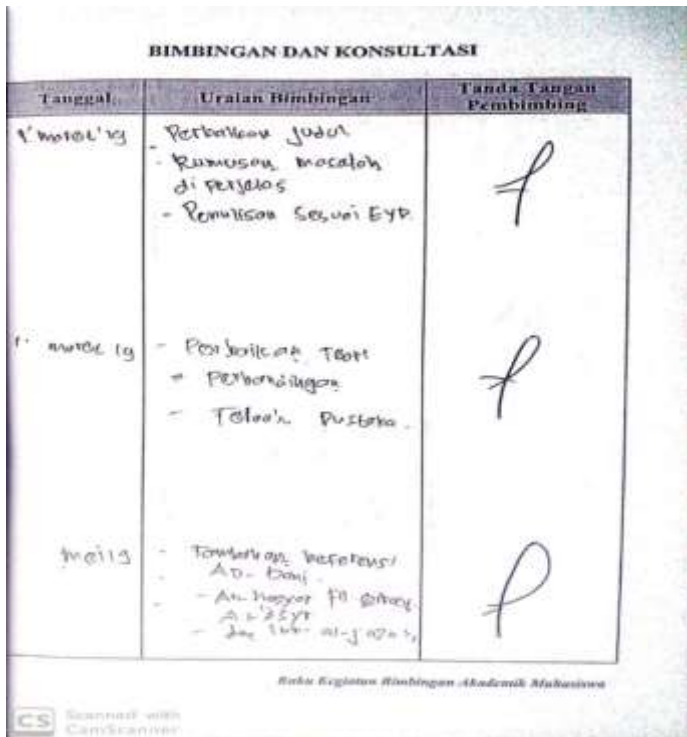 BIMBINGAN DAN KONSULTASI
Tanggal
Uraian Bimbingan
Tanda Tangan
Pembimbing
Perbaikan judul
- Rumusan masalah
di perjelas
- Penulisan Sesuai EYD.
maret 19
- Perbaikan Teori
- Perbandingan
- Telaah Pustaka.
Mei 19
- Tambahkan referensi
Ad-Dani
- An-Nasyr fi
Al-'Asyr
al-jazari
Buku Kegiatan Bimbingan Akademik Mahasiswa
CS Scanned with
CamScanner